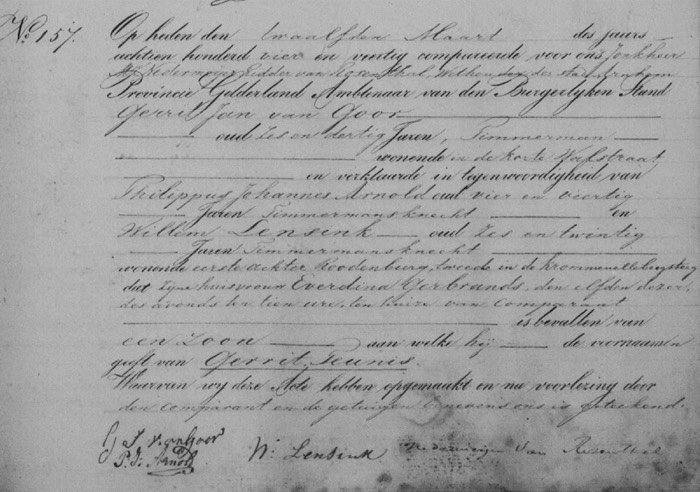 No. 157. Op heden den twaalfden Maart des jaars
achtien honderd vier en veertig compareerde voor ons Jonkheer
Nedermeijer ridder van Rosenthal, Wethouder der stad Arnhem
Provincie Gelderland Ambtenaar van den Burgerlyken Stand
Gerrit Jan van Goor
oud zes en dertig Jaren, Timmerman
wonende in de korte Walstraat
en verklaarde in tegenwoordigheid van
Philippus Johannes Arnold oud vier en veertig
Jaren Timmermansknecht en
Willem Lensink oud zes en twintig
Jaren Timmermansknecht
wonende eerste achter Roodenburg, tweede in de
dat zyne huisvrouw Everdina Gerbrands, den elfden dezer,
des avonds te tien ure, ten huize van Comparant
is bevallen van
een Zoon aan welke hij de voornamen
geeft van Gerrit Teunis.
Waarvan wy deze Akte hebben opgemaakt en na voorlezing door
den comparant en de getuigen benevens ons is geteekend.
G. J. v. van Goor
P. J. Arnold W. Lensink Nedermeijer van Rosenthal